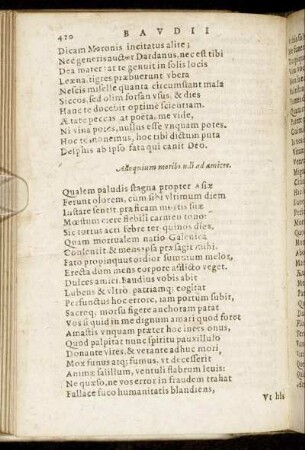 420 BAVDII
Dicam Maronis incitatus alite;
Nec generis auctor Dardanus, nec est tibi
Dea mater: at te genuit in solis locis
Leæna, tigres præbuerunt vbera
Nescis miselle quanta circumstant mala
Siccos, sed olim forsan vsus, & dies
Hanc te docebit optime scientiam.
Ætate peccas: at poëta, me vide,
Ni vina potes, nullus esse vnquam potes.
Hoc te monemus, hoc tibi dictum puta
Delphis ab ipso fata qui canit Deo.
ad amicos.
Qualem paludis stagna propter Asiæ
Ferunt olorem, cum sibi vltimum diem
Instare sentit,
Mœstum ciere flebili carmen tono:
Sic tortus acri febre ter quinos dies,
Quam mortualem natio Galenica
Consentit & mens ipsa præsagit mihi.
Fato propinquus ordior summum melos,
Erecta dum mens corpore afflicto veget.
Dulces amici, Baudius vobis abit
Lubens & vltro patriamq; cogitat
Perfunctus hoc errore, iam portum subit,
Sacreq; morsu figere anchoram parat
Vos si quid in me dignum amari quod foret
Amastis vnquam præter hoc inces onus,
Quod palpitat nunc spiritu pauxillulo
Donante vires, & vetante adhuc mori,
Mox funus atq; fumus, vt decesserit
Animæ salillum, ventuli flabrum leuis:
Ne quæso, ne vos error in fraudem trahat
Fallace fuco humanitatis blandiens,
Vt his